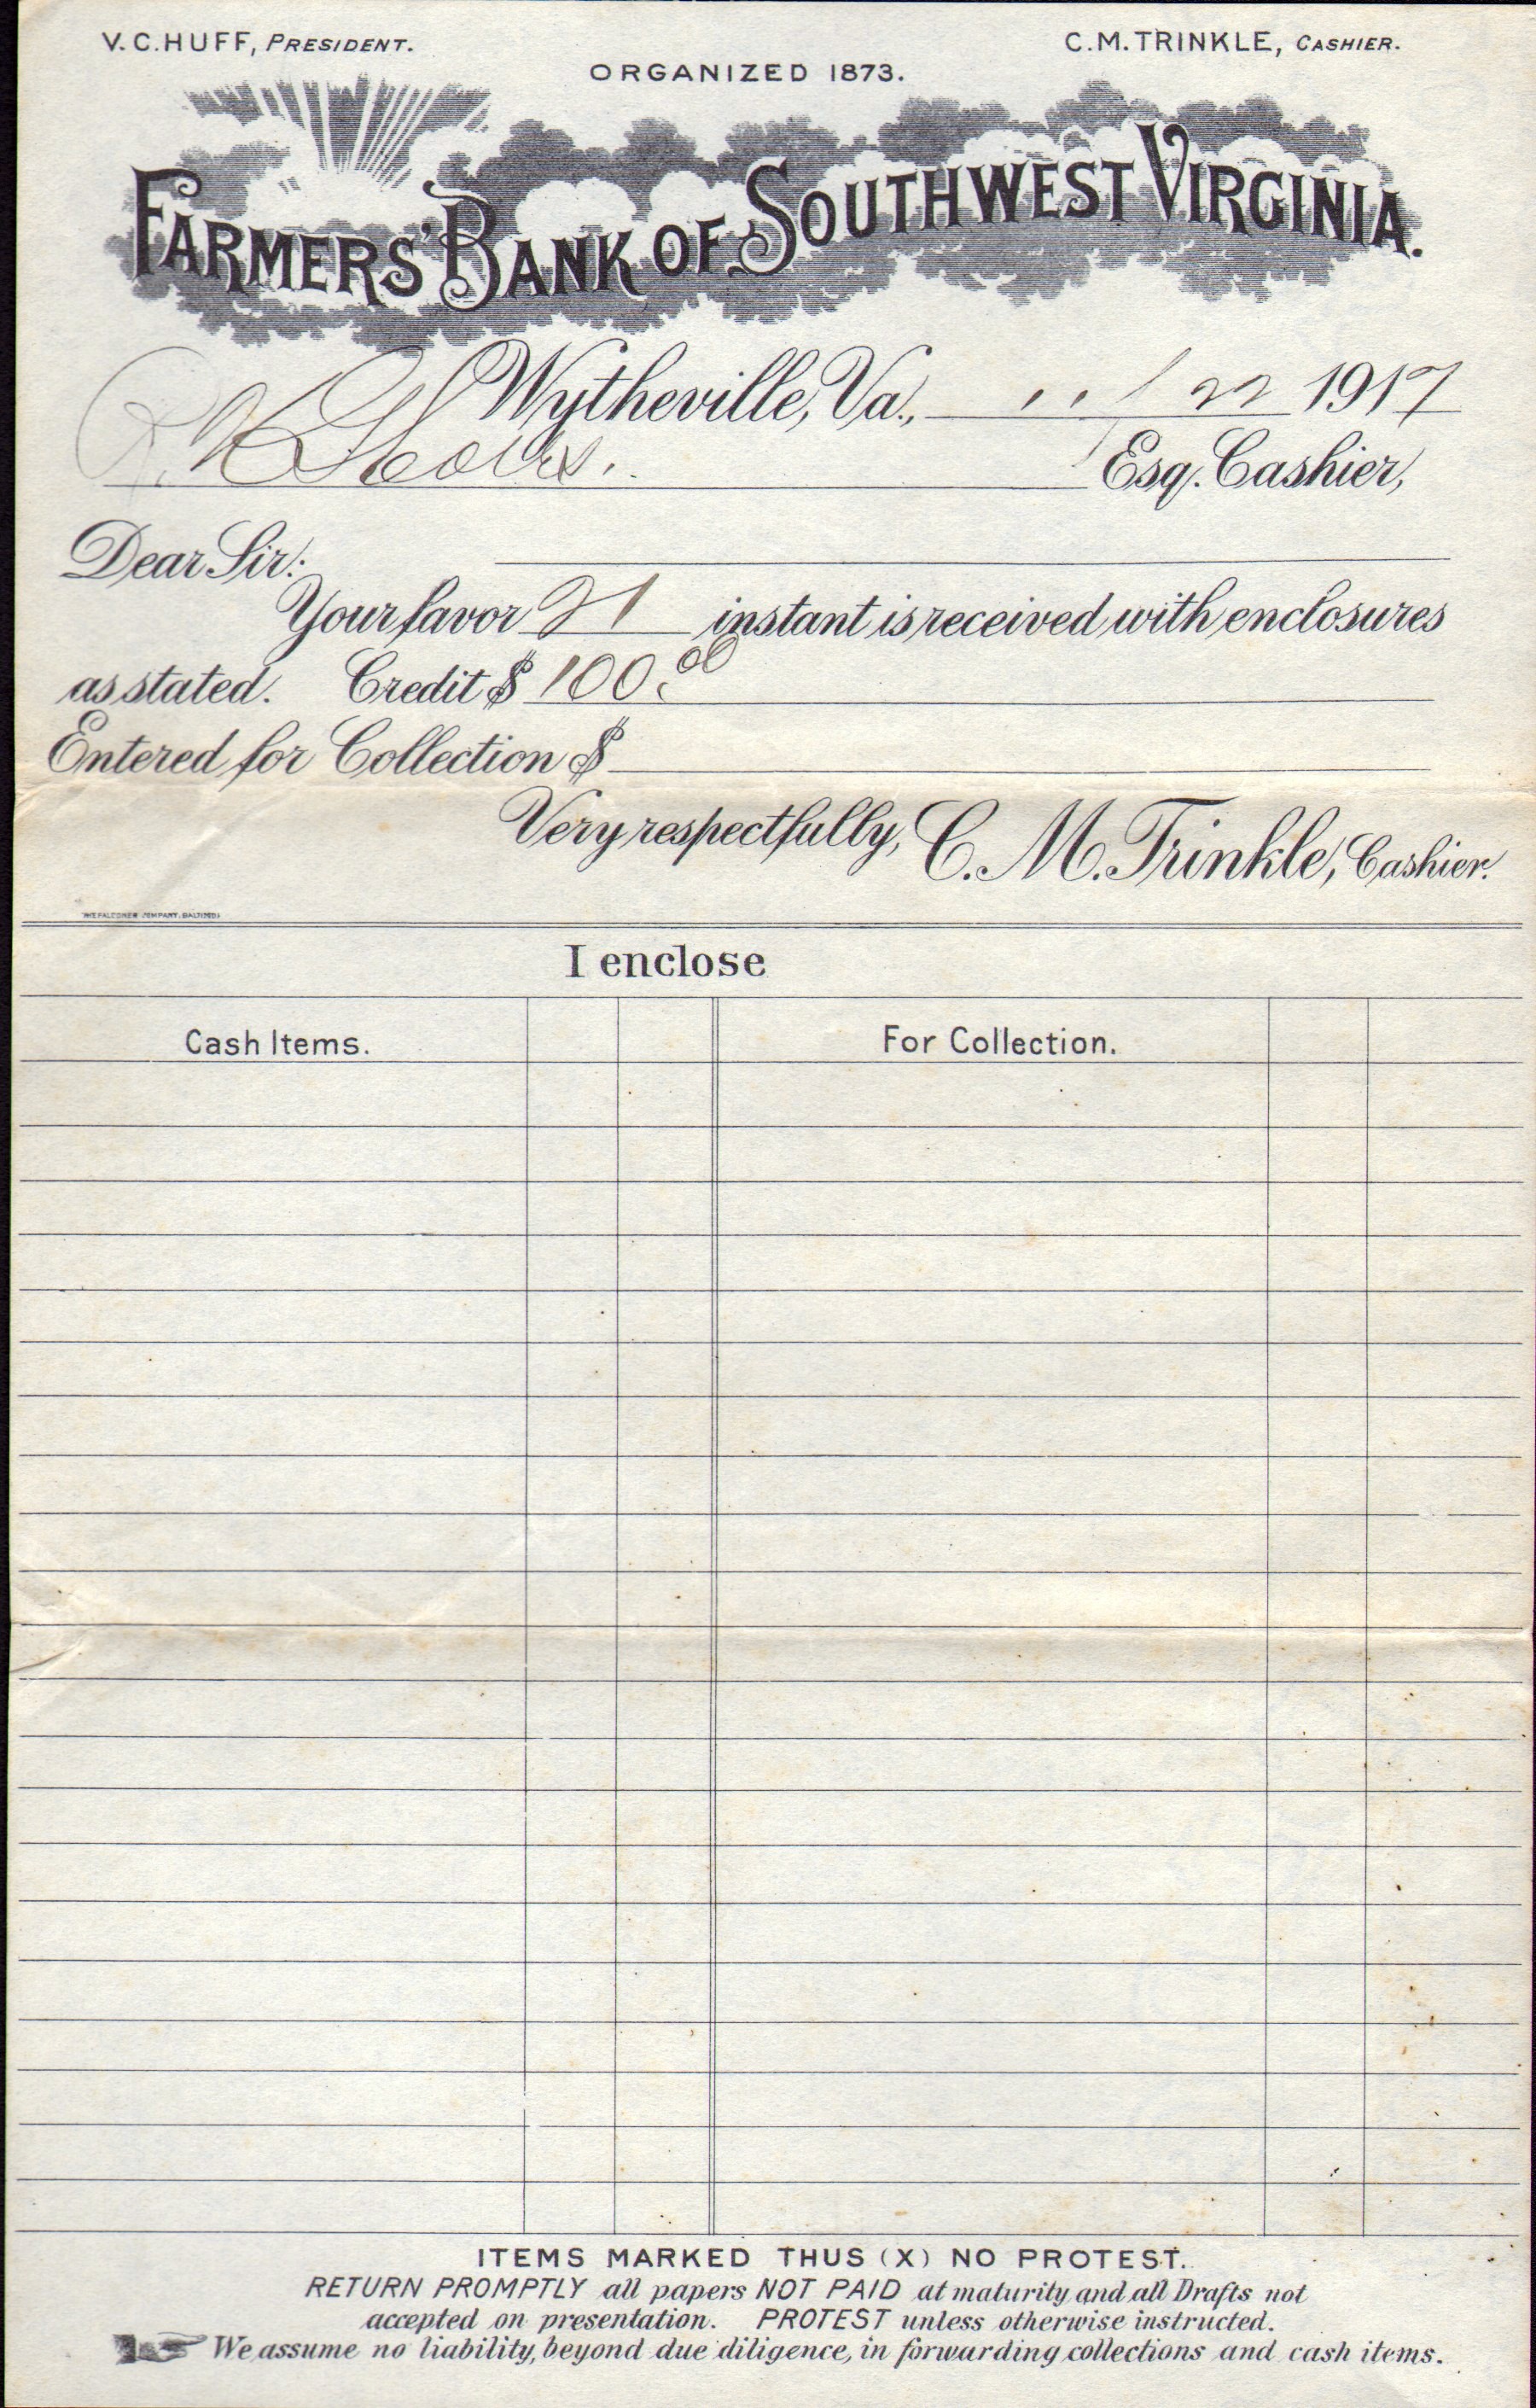 V.C.HUFF, PRESIDENT.
C.M.TRINKLE, CASHIER.
ORGANIZED 1873.
FARMERS' BANK OF SOUTHWEST VIRGINIA.
Wytheville, Va., 11/22 1917
R. Esq. Cashier,
Dear Sir:
Your favor 21 instant is received with enclosures
as stated. Credit $ 100.00
Entered for Collection $
Very respectfully, C. M. Trinkle, Cashier.
THE FALCONER COMPANY, BALTIMORE
I enclose
Cash Items. For Collection.
ITEMS MARKED THUS (X) NO PROTEST.
RETURN PROMPTLY all papers NOT PAID at maturity and all Drafts not
accepted on presentation. PROTEST unless otherwise instructed.
We assume no liability, beyond due diligence, in forwarding collections and cash items.